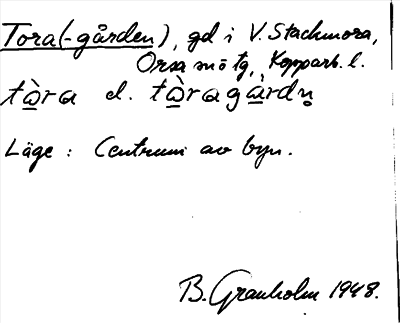 Tora(-gården), gd i V. Stackmora,
Orsa sn ö tg, Kopparb. l.
tò̲ra el. tò̲raga̲rdn̥
Läge : Centrum av byn.
B. Granholm 1948.